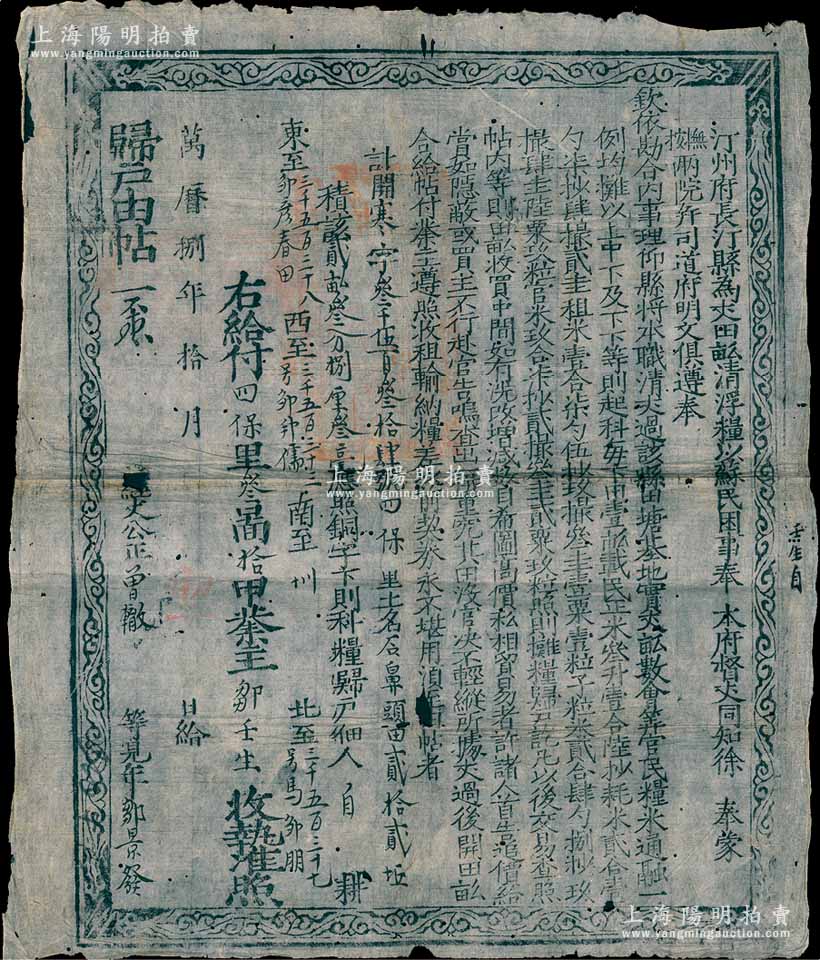 上海陽明拍賣
www.yangmingauction.com
汀州府長汀縣為丈田畝清浮糧以蘇民困事奉 本府督丈同知徐 奉蒙
撫按兩院并司道府明文俱遵奉
欽依勘合內事理仰縣將水職清丈過該縣田塘基地實丈畝數會算官民糧米通融一
例均攤以上中下及下下等則起科每下田壹畝載民正米叁升壹合陸抄耗米貳合壹
勺柒抄肆撮貳圭租米壹合柒勺伍抄 撮叁圭壹粟壹粒子粒米貳合肆勺捌抄玖
撮肆圭陸粟玖粒官米玖合柒抄貳撮叁圭貳粟玖粒照則攤糧歸戶訖凡以後交易查照
帖內等則田畝收買中間如有洗改增減 自希圖高價私相貿易者許諸人首告追價給
賞如隱蔽或買主不行赴官告鳴查出 重究其田沒官決不輕縱所據丈過後開田畝
合給帖付業主遵照收租輸納糧差 前契券永不堪用須至由帖者
計開寒字叁千伍百叁拾肆號四保 里土名石鼻頭田貳拾貳坵
積該貳畝叁分捌厘叁毫 照銅字下則科糧歸戶佃人 自 耕
東至三千五百二十八 鄒彥春田 西至三千五百三十二號鄒仲儒 南至圳 北至三千五百三十七號馬鄒朋
右給付四保里叁啚拾甲業主鄒壬生 收執准照
萬曆捌年拾月 日給
經丈公正曾徹 等見年鄒景發
歸戶由帖 一張
壬生自
上海陽明拍賣
www.yangmingauction.com
上海陽明拍賣
www.yangmingauction.com